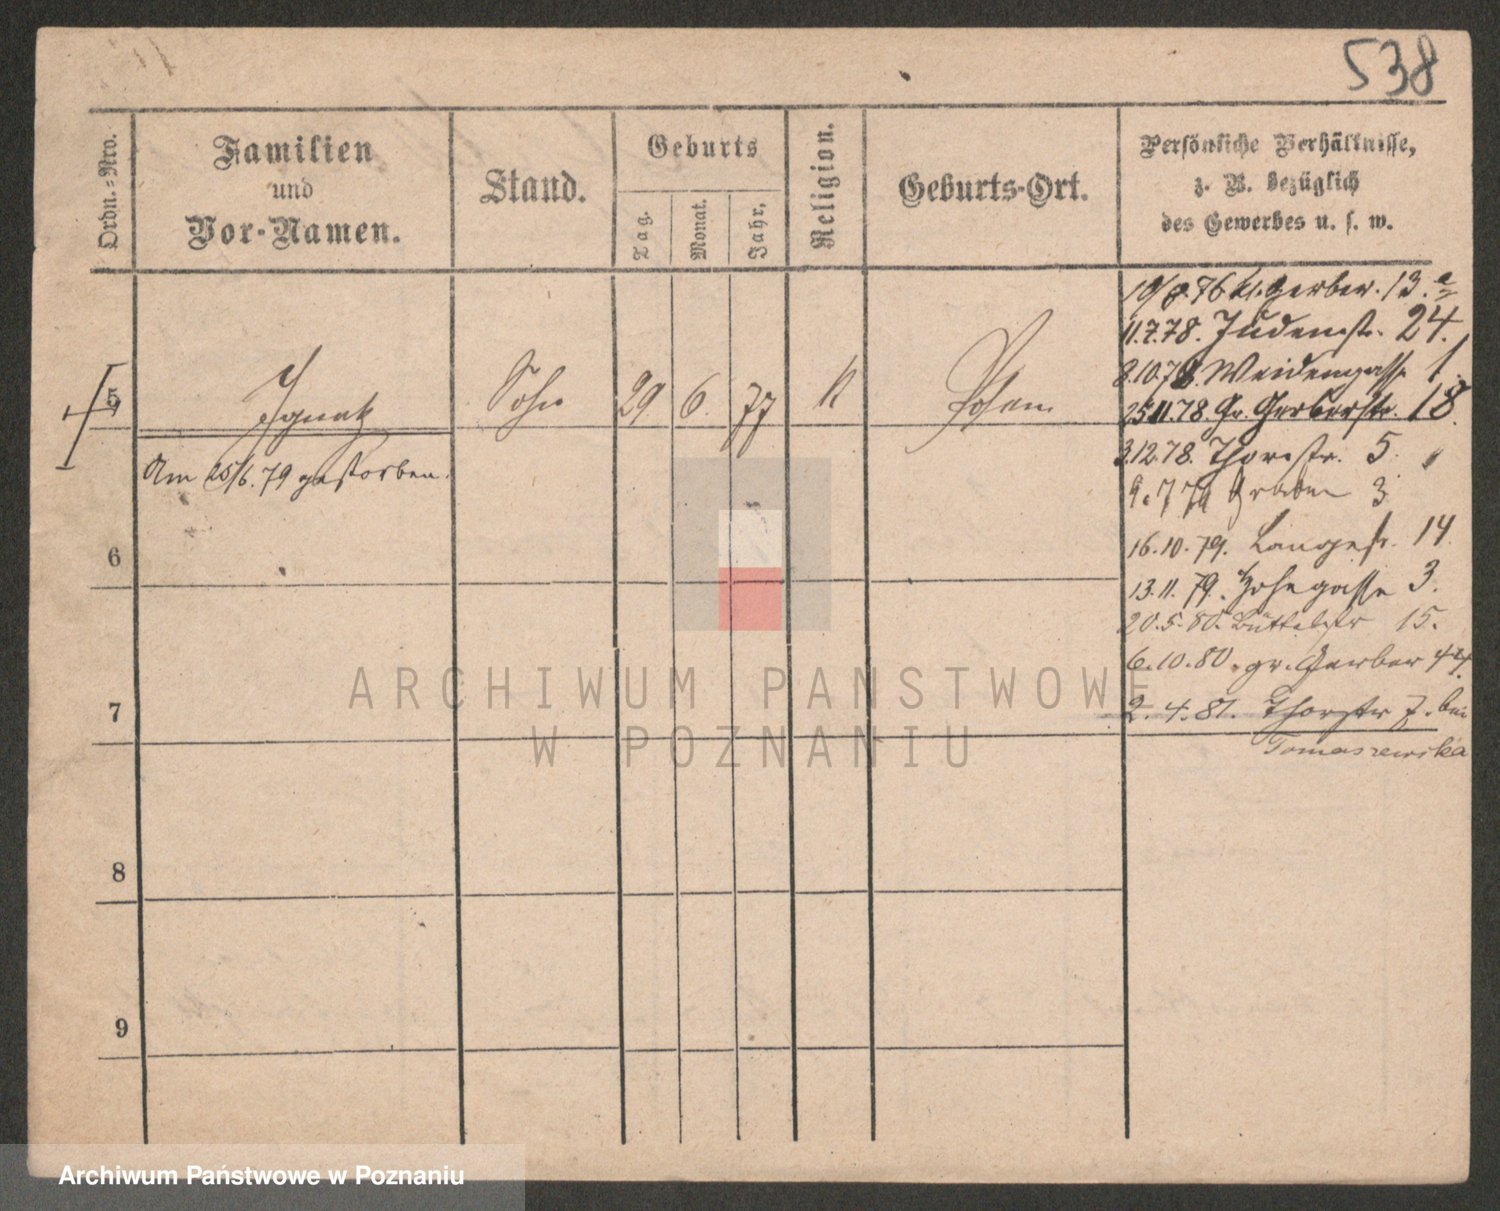 538
Ordn.=Nro.
Familien
und
Vor-Namen.
Stand.
Geburts
Tag.
Monat.
Jahr.
Religion.
Geburts-Ort.
Persönliche Verhältnisse,
z. B. bezüglich
des Gewerbes u. s. w.
5
Ignatz
Sohn
29. 6. 77
K
Posen
Am 25/6. 79 gestorben.
6
7
8
9
76 kl. Gerber. 13.
11.7.78. Judenstr. 24.
8.10.78. Weidengasse 1.
25.11.78 Gr. Gerberstr. 18.
3.12.78. Thorstr. 5.
9.7 79 Graben 3
16.10.79. Langestr. 14
13.11.79. Hohegasse 3.
20.5.80. Büttelstr 15.
6.10.80. gr. Gerber 44.
2.4.81. Thorstr 7. bei
Tomaszewska
ARCHIWUM PAŃSTWOWE
W POZNANIU
Archiwum Państwowe w Poznaniu